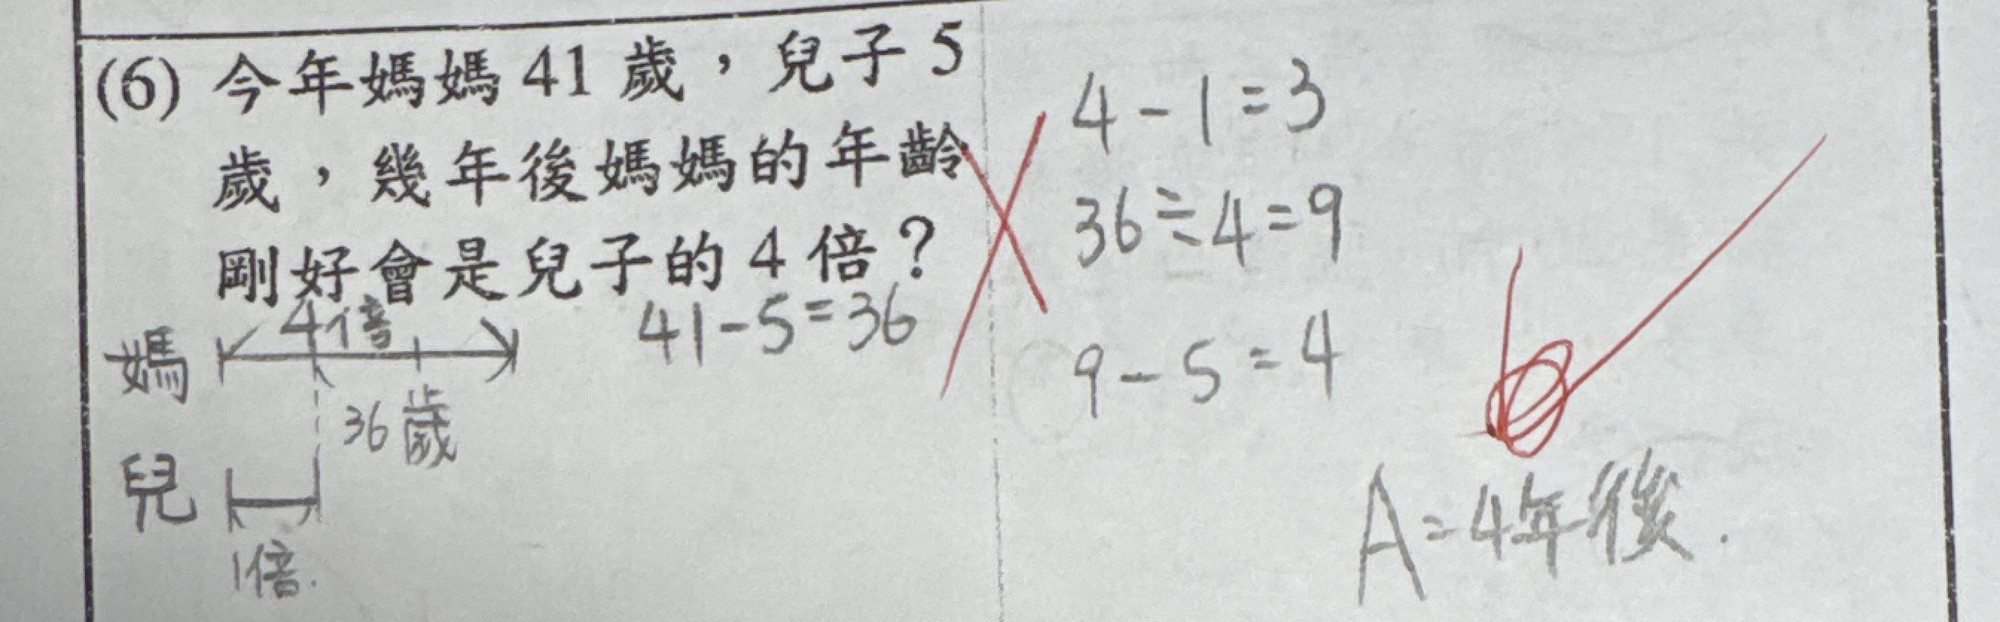 (6) 今年媽媽 41 歲，兒子 5
歲，幾年後媽媽的年齡
剛好會是兒子的 4 倍？
4倍
41-5=36
媽
36歲
兒
1倍.
4-1=3
36÷4=9
9-5=4
A=4年後.